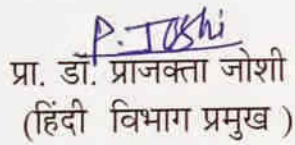 P. Joshi
प्रा. डॉ. प्राजक्ता जोशी
(हिंदी विभाग प्रमुख )